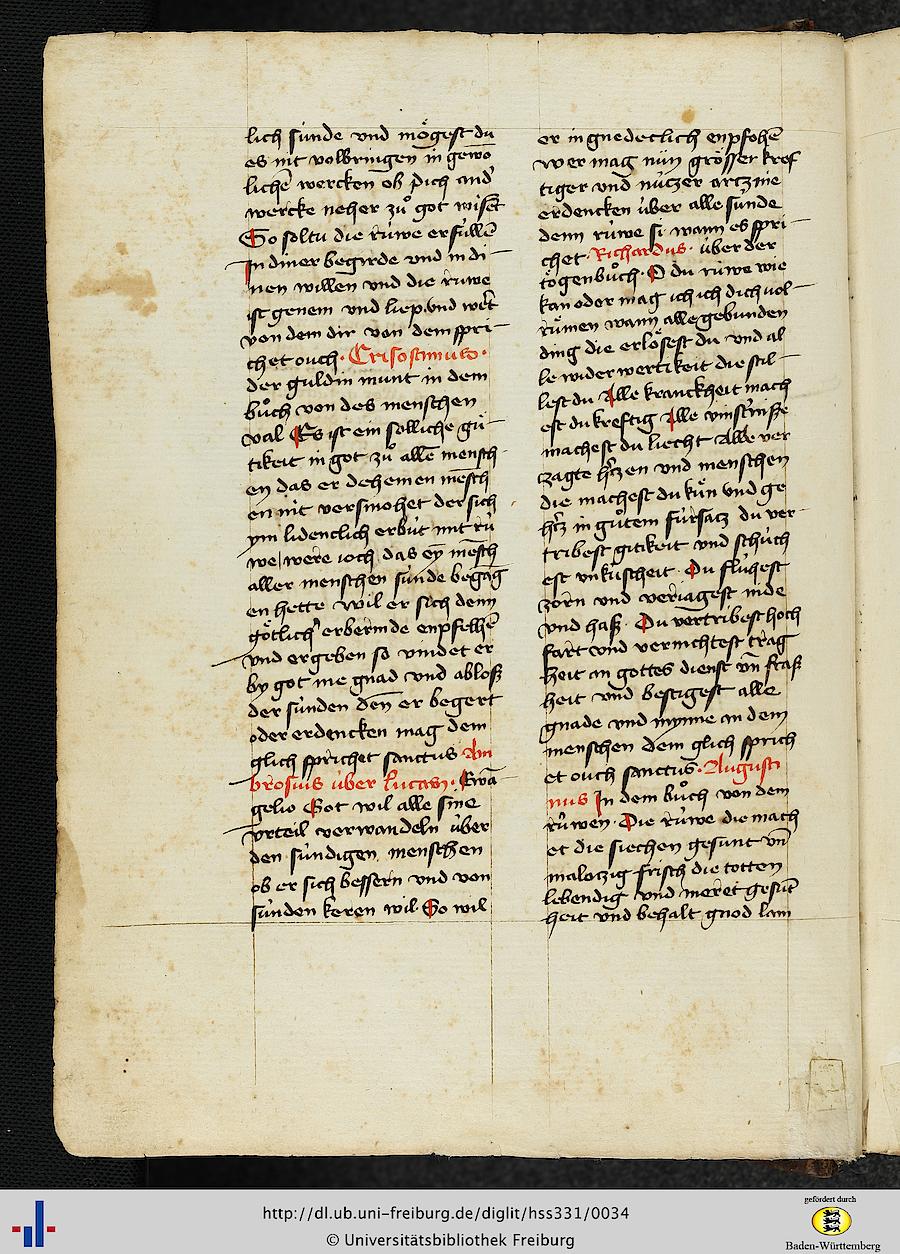 lich sünde vnd mögest du
es nit volbringen in gewö
lichē wercken ob dich and'
wercke neher zů got wisēt
So soltu die rúwe erfúllē
In diner begirde vnd in di-
nen willen vnd die rúwe
ist genem vnd liep vnd wēt
von dem dir von dem spri-
chet ouch· Crisostimus·
der guldin munt in dem
bůch von des menschen
val Es ist ein solliche gü-
tikeit in got zů allē mensch-
en das er dehemen mēsch
en nit versmohet der sich
ym lidenclich erbút mit rú
we were ioch das ey̅ mēsch
aller menschen súnde begāg
en hette wil er sich denn
götlich' erbermde enpfelhē
vnd ergeben so vindet er
by got me gnad vnd abloß
der súnden dēn er begert
oder erdencken mag dem
glich sprichet sanctus Am
brosius úber lucam· Ewā-
gelio Got wil alle sine
vrteil verwandeln úber
den súndigen menschen
ob er sich bessern vnd von
súnden keren wil· So wil
er in gnedeclich enpfohē
wer mag nún grösser kref
tiger vnd núczer arcznie
erdencken úber alle súnde
denn rúwe si· wann es spri-
chet· Richardus· úber der
togenbůch· O du rúwe wie
kan oder mag ich ich dich vol-
rümen wann alle gebunden
ding die erlösest du vnd al
le wider wertikeit die stil-
lest du Alle kranckheit mach
est du kreftig Alle vinst'niße
machest du liecht Alle ver
zagte h'czen vnd menschen
die machest du kün vnd ge
h'cz in gůtem fúrsacz du ver-
tribest gitikeit vnd schúch
est vnkúscheit· Du flúhest
zorn vnd veriagest nide
vnd haß· Du vertribest hoch
fart vnd vernichtest träg
heit an gottes dienst vn̄ fraß
heit vnd bestigest alle
gnade vnd mynne an dem
menschen dem glich sprich
et ouch sanctus· Augusti
nus In dem bůch von dem
rúwen· Die rúwe die mach
et die siechen gesunt vn̄
malaczig frisch die totten
lebendig vnd meret gesūt
heit vnd behalt gnod lam
http://dl.ub.uni-freiburg.de/diglit/hss331/0034
© Universitätsbibliothek Freiburg
gefördert durch
Baden-Württemberg